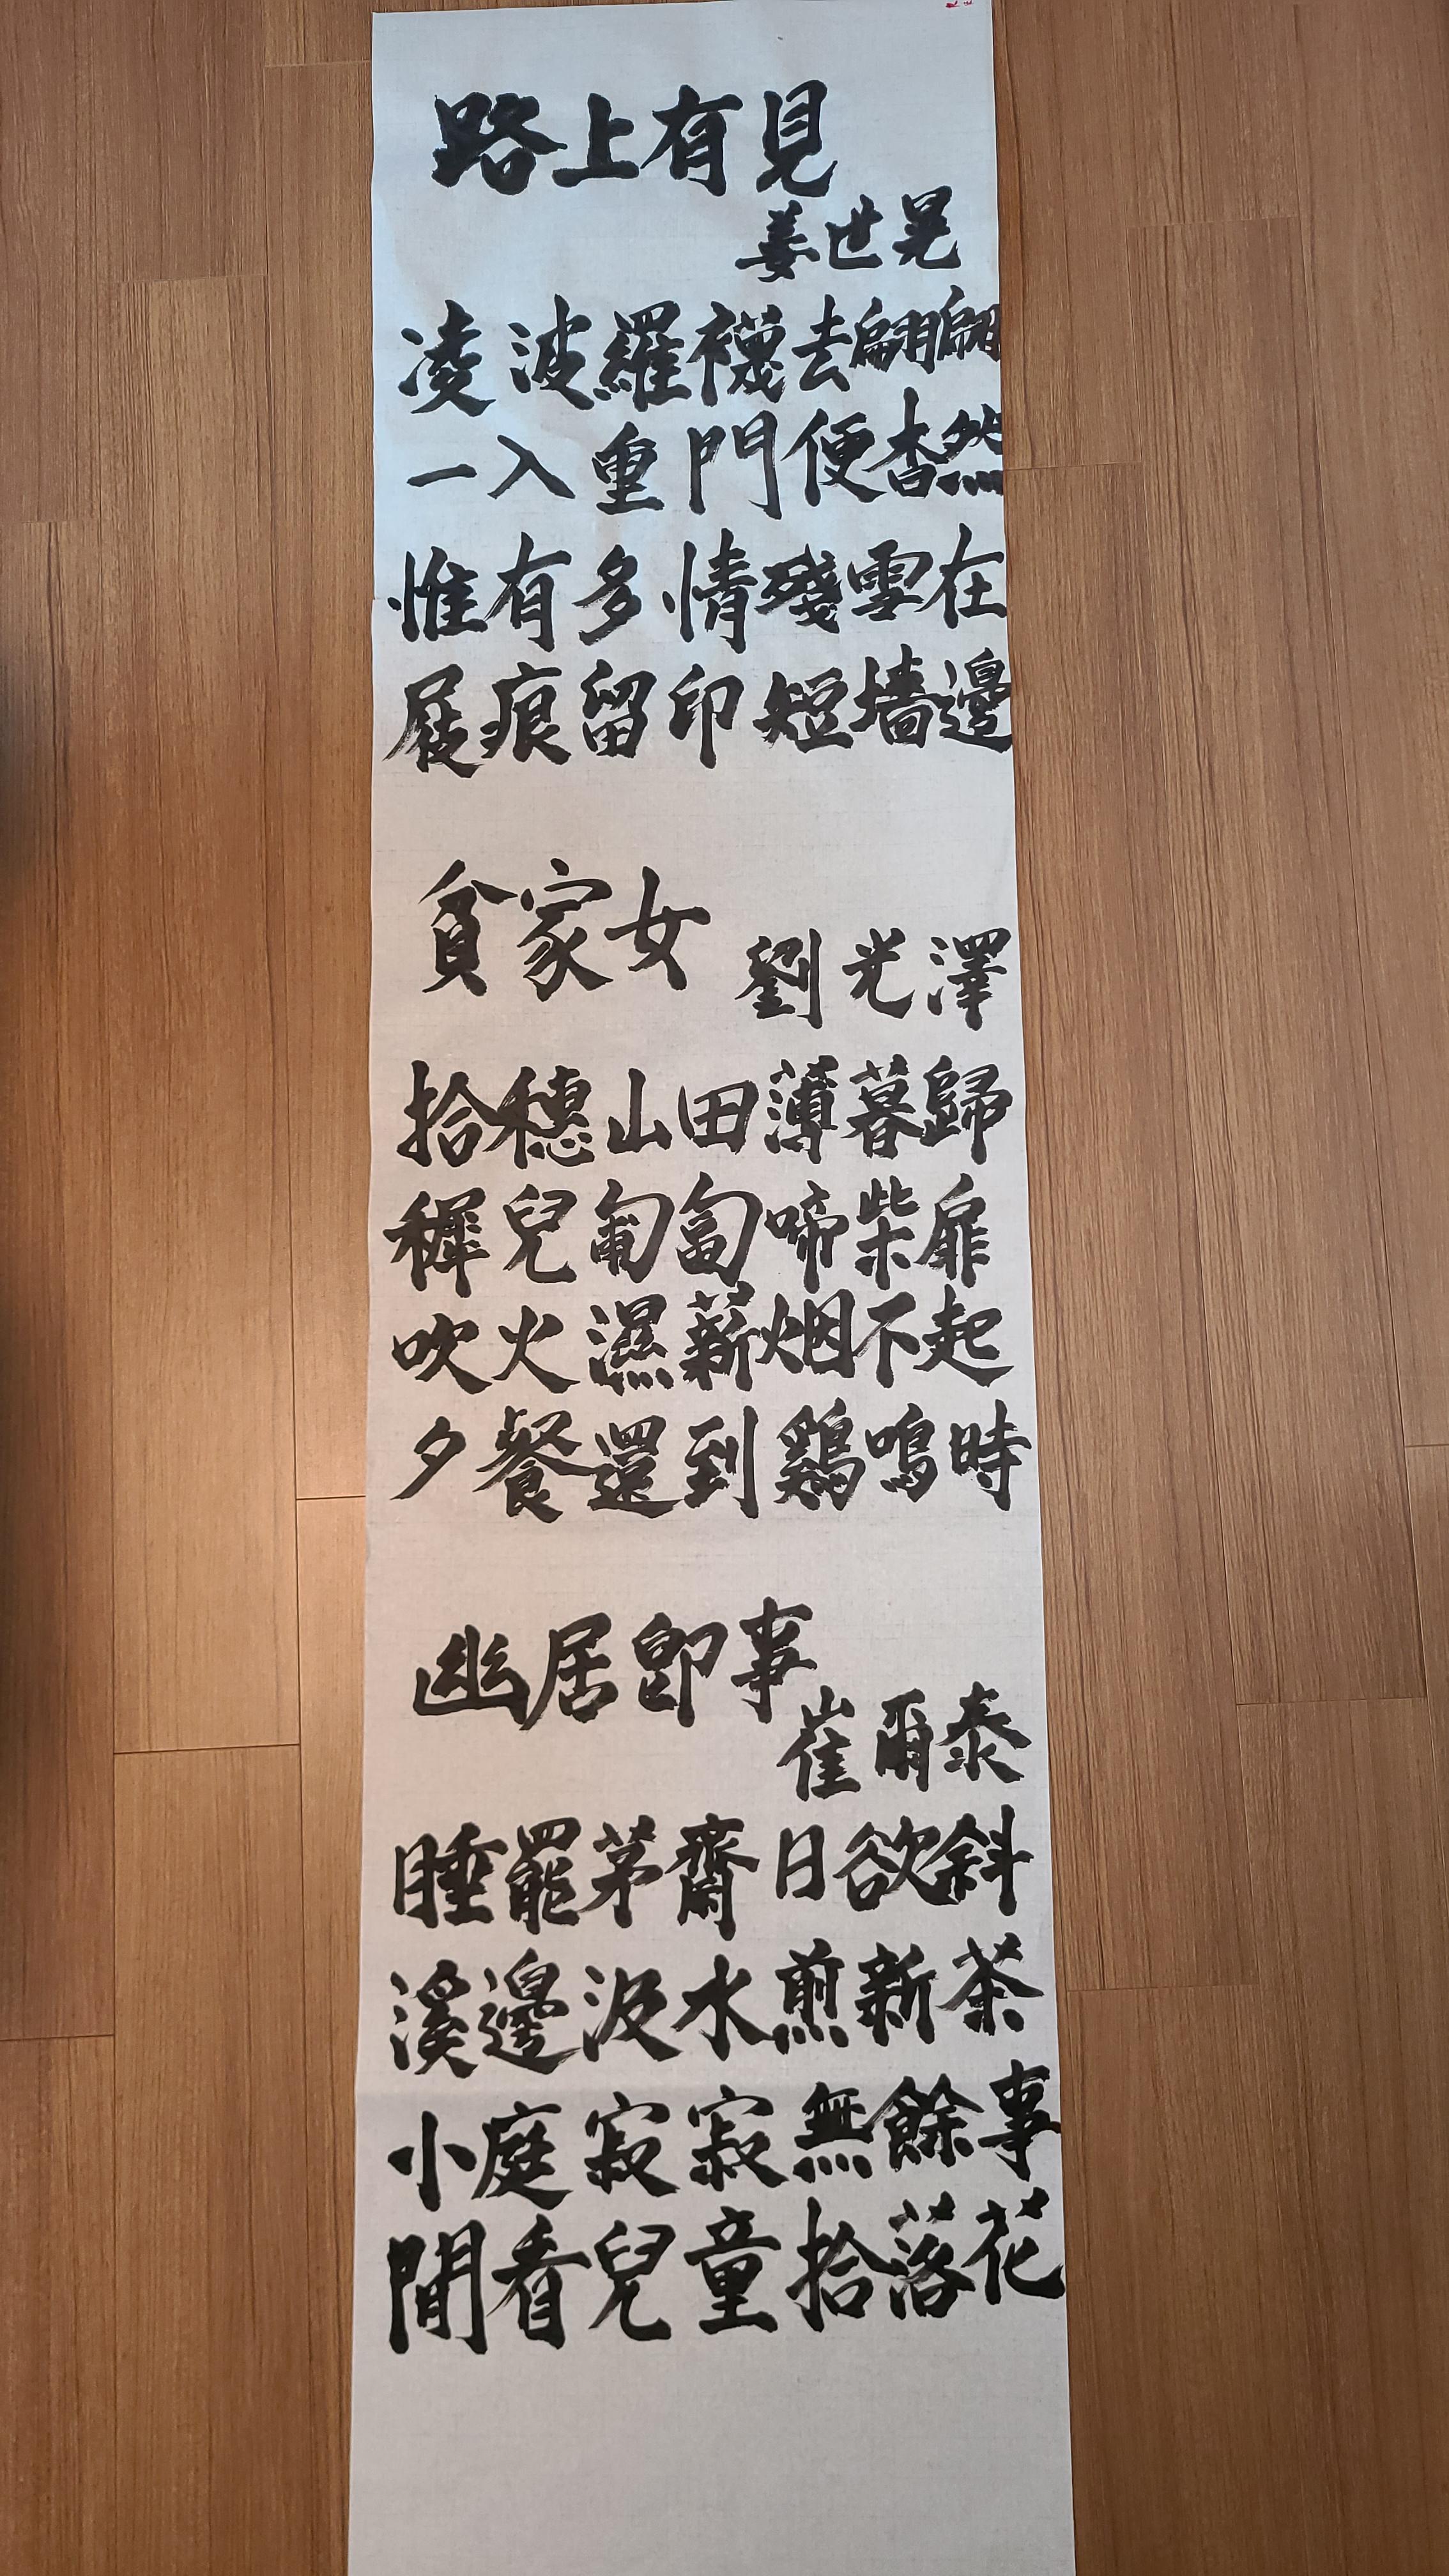 路上有見
姜世晃
凌波羅襪去翩翩
一入重門便杳然
惟有多情殘雪在
屐痕留印短墻邊
貧家女
劉光澤
拾穗山田薄暮歸
穉兒匍匐啼柴扉
吹火濕薪烟不起
夕餐還到鷄鳴時
幽居卽事
崔爾泰
睡罷茅齋日欲斜
溪邊汲水煎新茶
小庭寂寂無餘事
閒看兒童拾落花